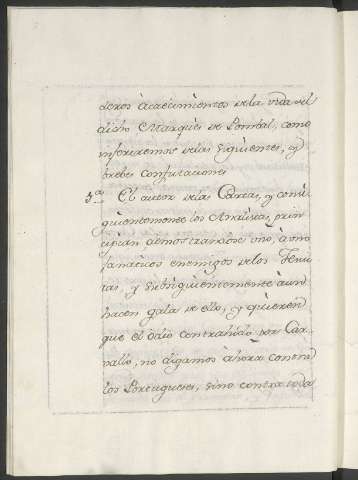 deros àcaecimientos dela vida del
dicho Marquès de Pombal, como
inferiremos delas siguientes, y
brebes confutaciones.
5.a El autor delas Cartas, y consi-
guientemente los Analistas, prin-
cipian, demostrandose uno, à otro
fanaticos enemigos delos Jesui-
tas, y subsiguientemente àun
hacen gala de ello, y quieren
que el òdio contrahido por Car-
vallo, no digamos àhora contra
los Portugueses, sino contra toda